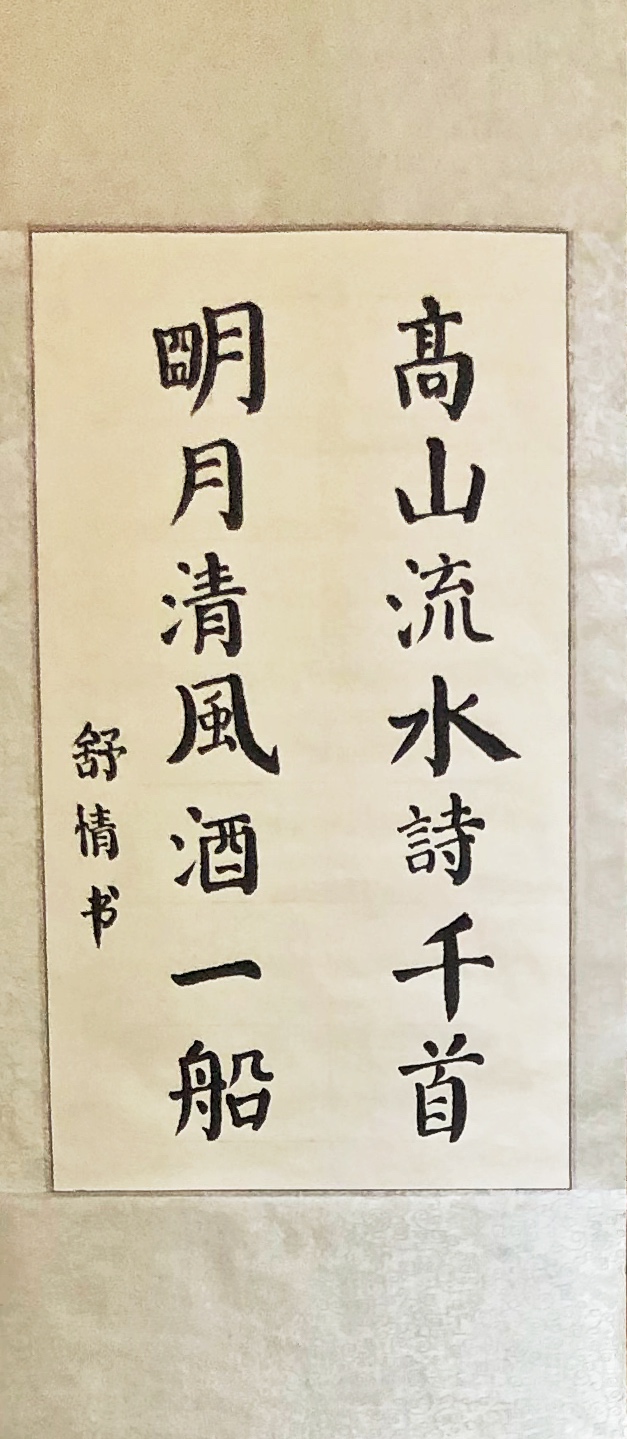 髙山流水詩千首
明月清風酒一船
舒情书